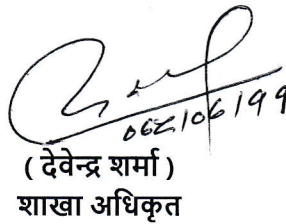 062/06/19
( देवेन्द्र शर्मा )
शाखा अधिकृत